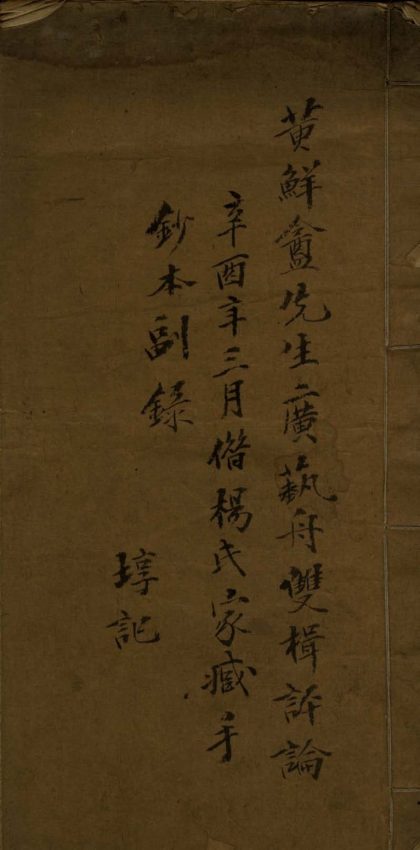 黄鮮盦先生廣藝舟雙楫評論
辛酉年三月借楊氏家臧手
鈔本副録
琈記